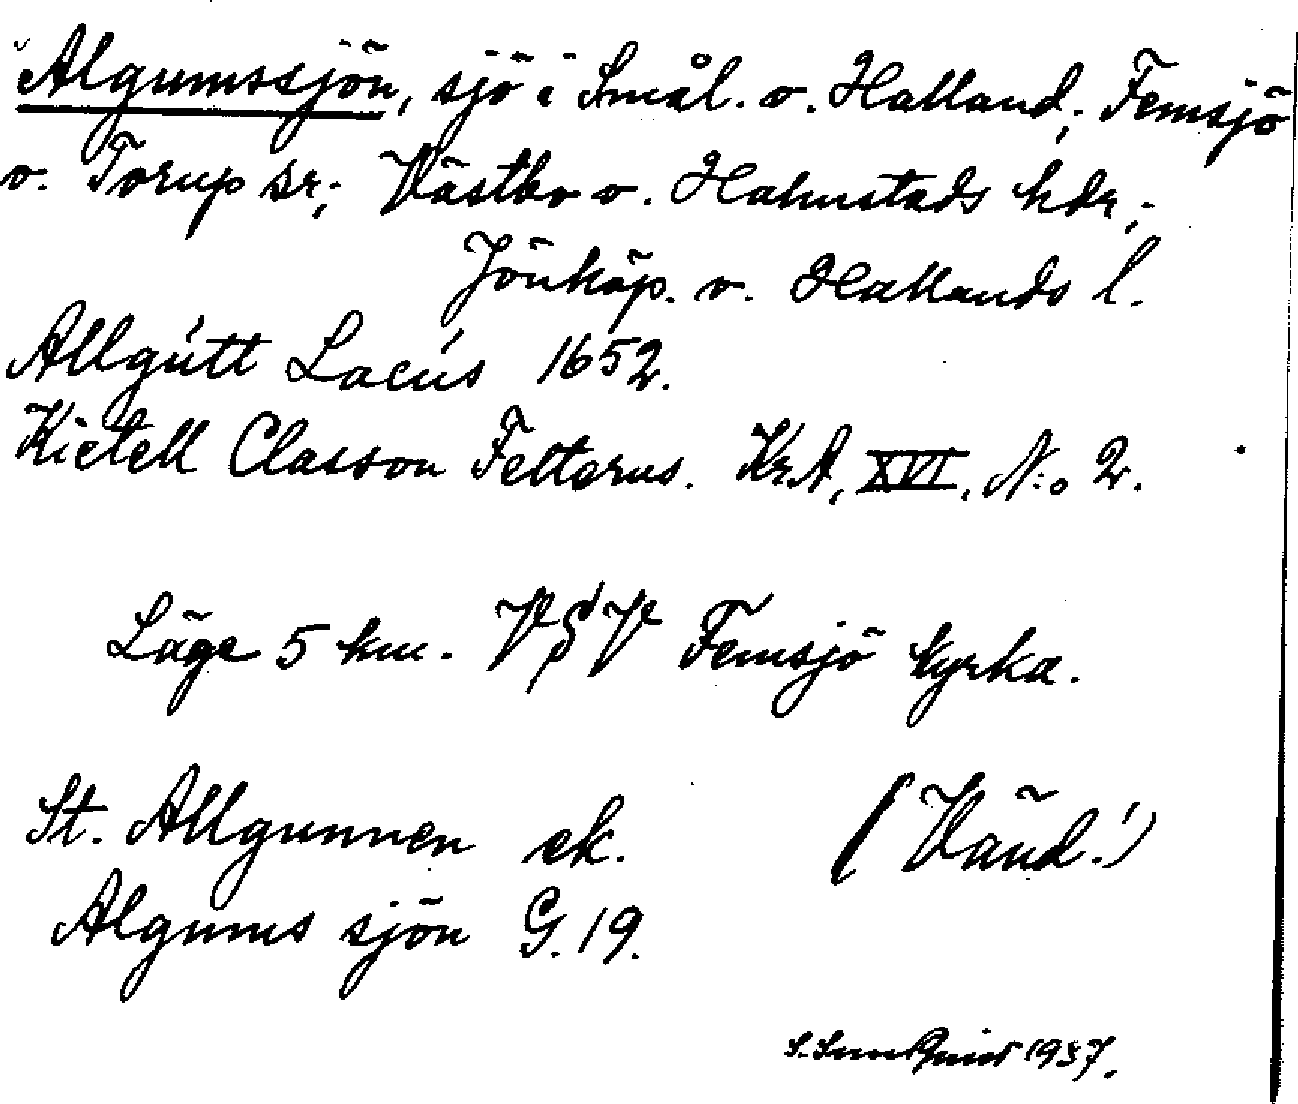 Algumssjön, sjö i Smål. o. Halland; Femsjö
o. Torup sr; Västbo o. Halmstads hdr;
Jönköp. o. Hallands l.
Allgútt Lacús 1652.
Kietell Classon Felterus. Kr.A, XVI, N:o 2.
Läge 5 km. VSV Femsjö kyrka.
St. Allgunnen ek.
(Vänd!)
Algums sjön G. 19.
1937.